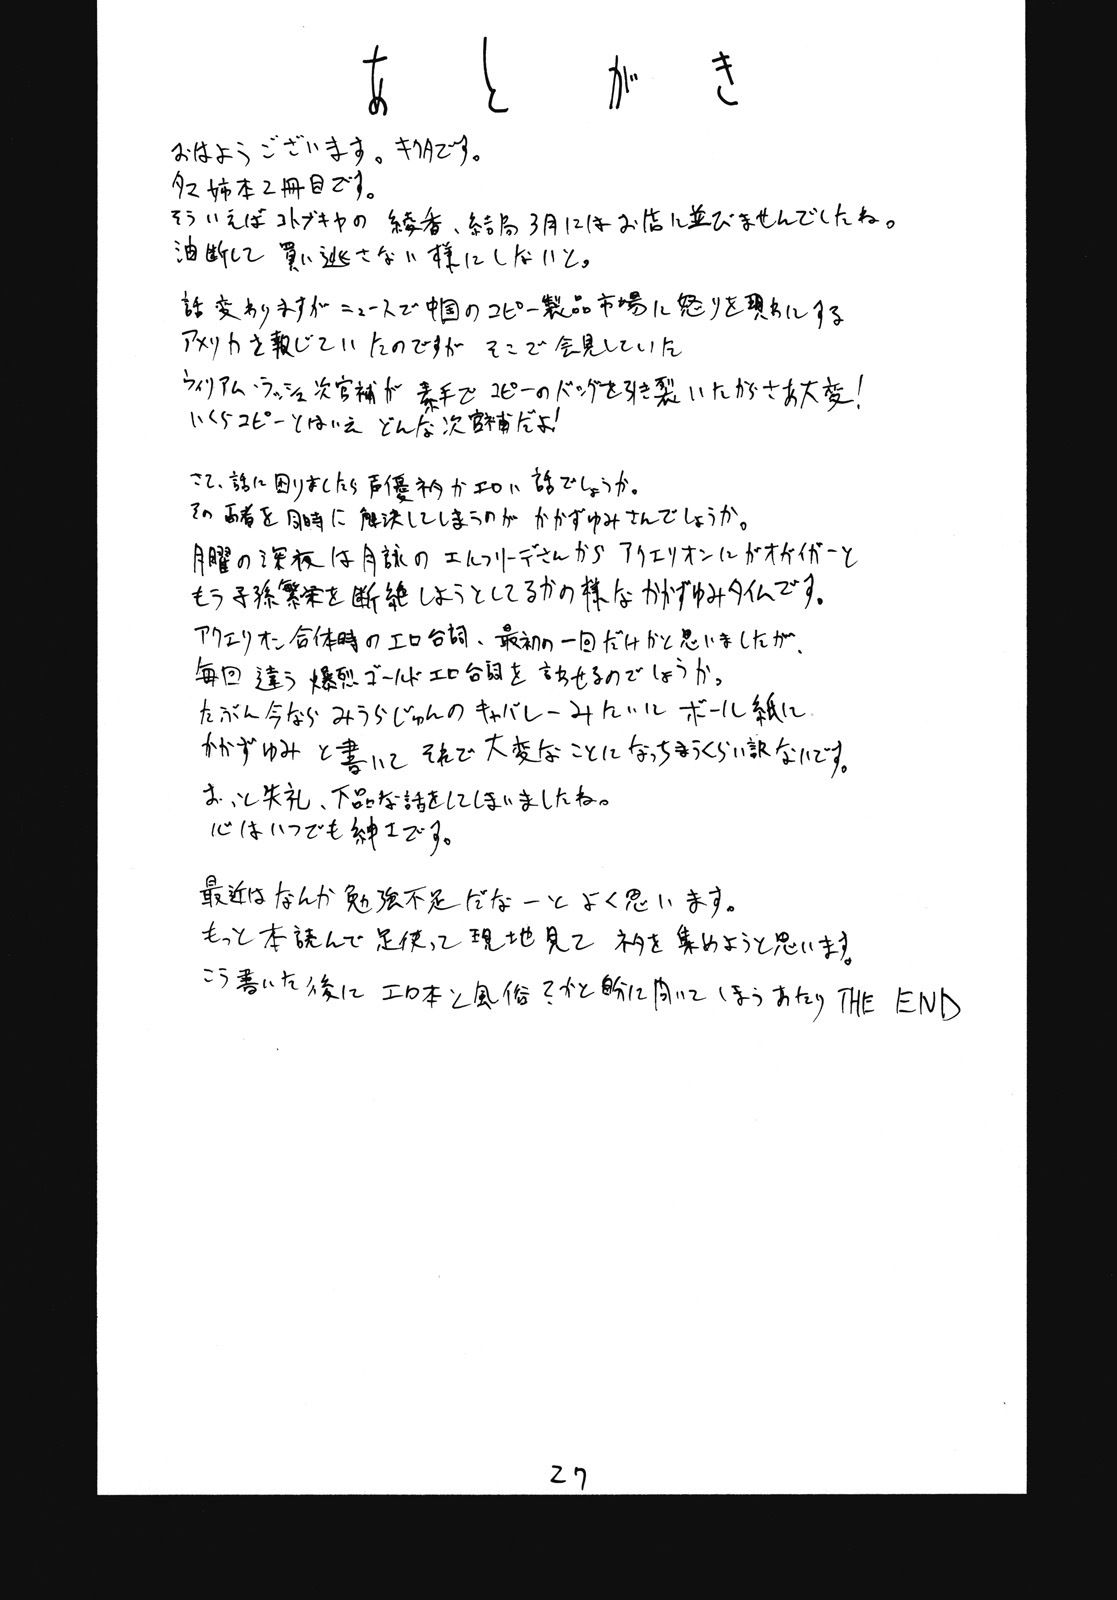 あとがき
おはようございます。キクタです。
タマ姉本2冊目です。
そういえばコトブキヤの 綾香、結局3月にはお店に並びませんでしたね。
油断して 買い逃さない様にしないと。
話変わりますがニュースで中国のコピー製品市場に怒りを現わにする
アメリカを報じていたのですが そこで会見していた
ウィリアム・ラッシュ次官補が 素手で コピーのバッグを引き裂いたからさあ大変!
いくらコピーとはいえ どんな次官補だよ!
さて、話に困りましたら声優ネタかエロい話でしょうか。
その両者を同時に 解決してしまうのが かかずゆみさんでしょうか。
月曜の深夜は月詠の エルフリーデさんから アクエリオンにガオガイガーと
もう子孫繁栄を断絶しようとしてるかの様な かかずゆみタイムです。
アクエリオン合体時のエロ台詞、最初の一回だけかと思いましたが、
毎回 違う 爆烈ゴールドエロ台詞を 言わせるのでしょうか。
たぶん今なら みうらじゅんの キャバレーみたいに ボール紙に
かかずゆみ と書いて それで大変なことになっちまうくらい訳ないです。
おっと失礼、下品な話をしてしまいましたね。
心はいつでも紳士です。
最近はなんか勉強不足だなーと よく思います。
もっと 本読んで 足使って 現地見て ネタを集めようと思います。
こう書いた後に エロ本と風俗?かと 自分に聞いて しまうあたり THE END
27